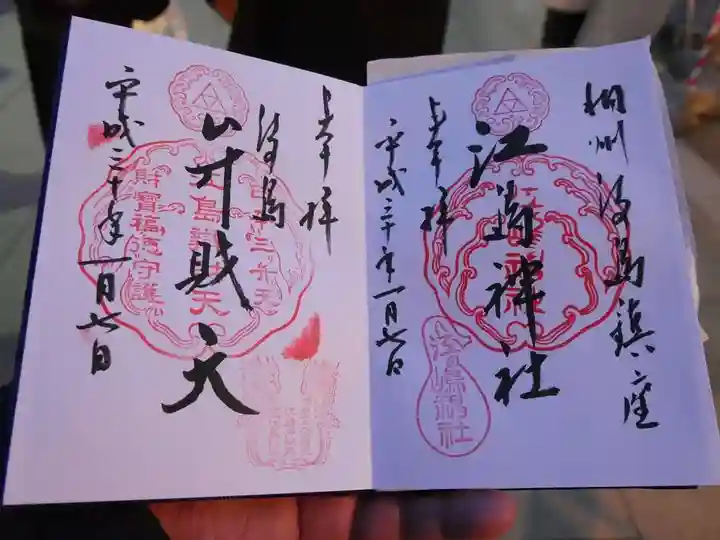 相州江島鎮座
江島神社
奉拝
平成三十年一月七日
江島神社
奉拝
江島
弁財天
平成三十年一月七日
財寳福徳守護